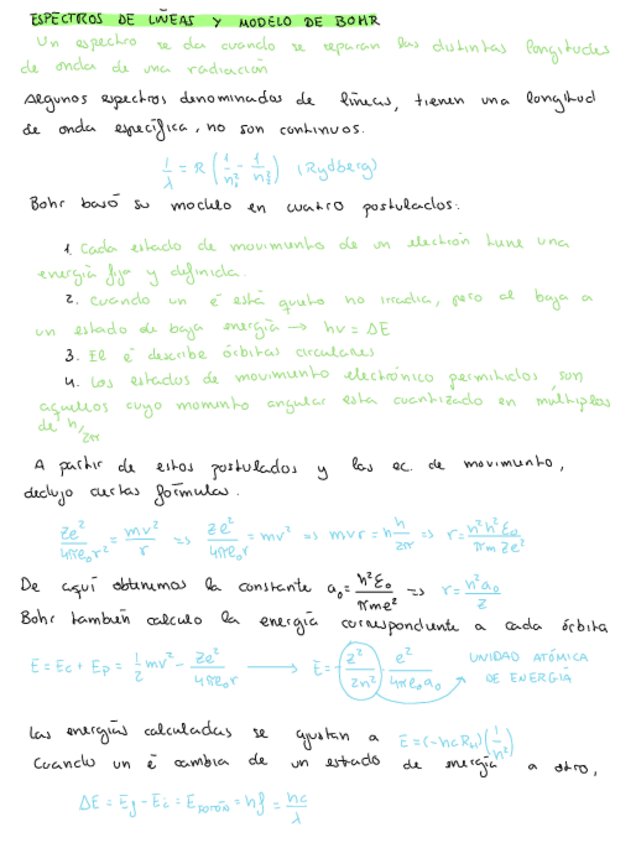 ESPECTROS DE LÍNEAS Y MODELO DE BOHR
Un espectro se da cuando se separan las distintas longitudes
de onda de una radiación
Algunos espectros denominados de líneas, tienen una longitud
de onda específica, no son continuos.
1/λ = R (1/n₁² - 1/n₂²) (Rydberg)
Bohr basó su modelo en cuatro postulados:
1. Cada estado de movimiento de un electrón tiene una
energía fija y definida.
2. Cuando un e⁻ está quieto no irradia, pero al baja a
un estado de baja energía → hν = ΔE
3. El e⁻ describe órbitas circulares
4. Los estados de movimiento electrónico permitidos, son
aquellos cuyo momento angular esta cuantizado en múltiplos
de h/2π
A partir de estos postulados y las ec. de movimiento,
dedujo ciertas fórmulas.
Ze²/4πε₀r² = mv²/r => Ze²/4πε₀r = mv² => mvr = n h/2π => r = n²h²ε₀/πmZe²
De aquí obtenemos la constante a₀ = h²ε₀/πme² => r = n²a₀/Z
Bohr también calculo la energía correspondiente a cada órbita
E = Ec + Ep = 1/2 mv² - Ze²/4πε₀r → E = - Z²/2n² · e²/4πε₀a₀ UNIDAD ATÓMICA
DE ENERGÍA
Las energías calculadas se ajustan a E = (-hcR_H)(1/n²)
Cuando un e⁻ cambia de un estado de energía a otro,
ΔE = Ef - Ei = E_FOTÓN = hf = hc/λ